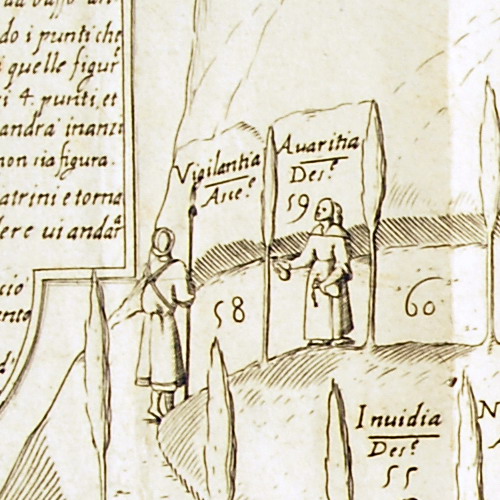 do i punti che
quelle figur
4. punti, et
andrà inanzi
non sia figura.
atrini e torna
dere ui andar
Vigilantia
Asce.e
Auaritia
Des.e
59
58
60
Inuidia
Des.e
55
N